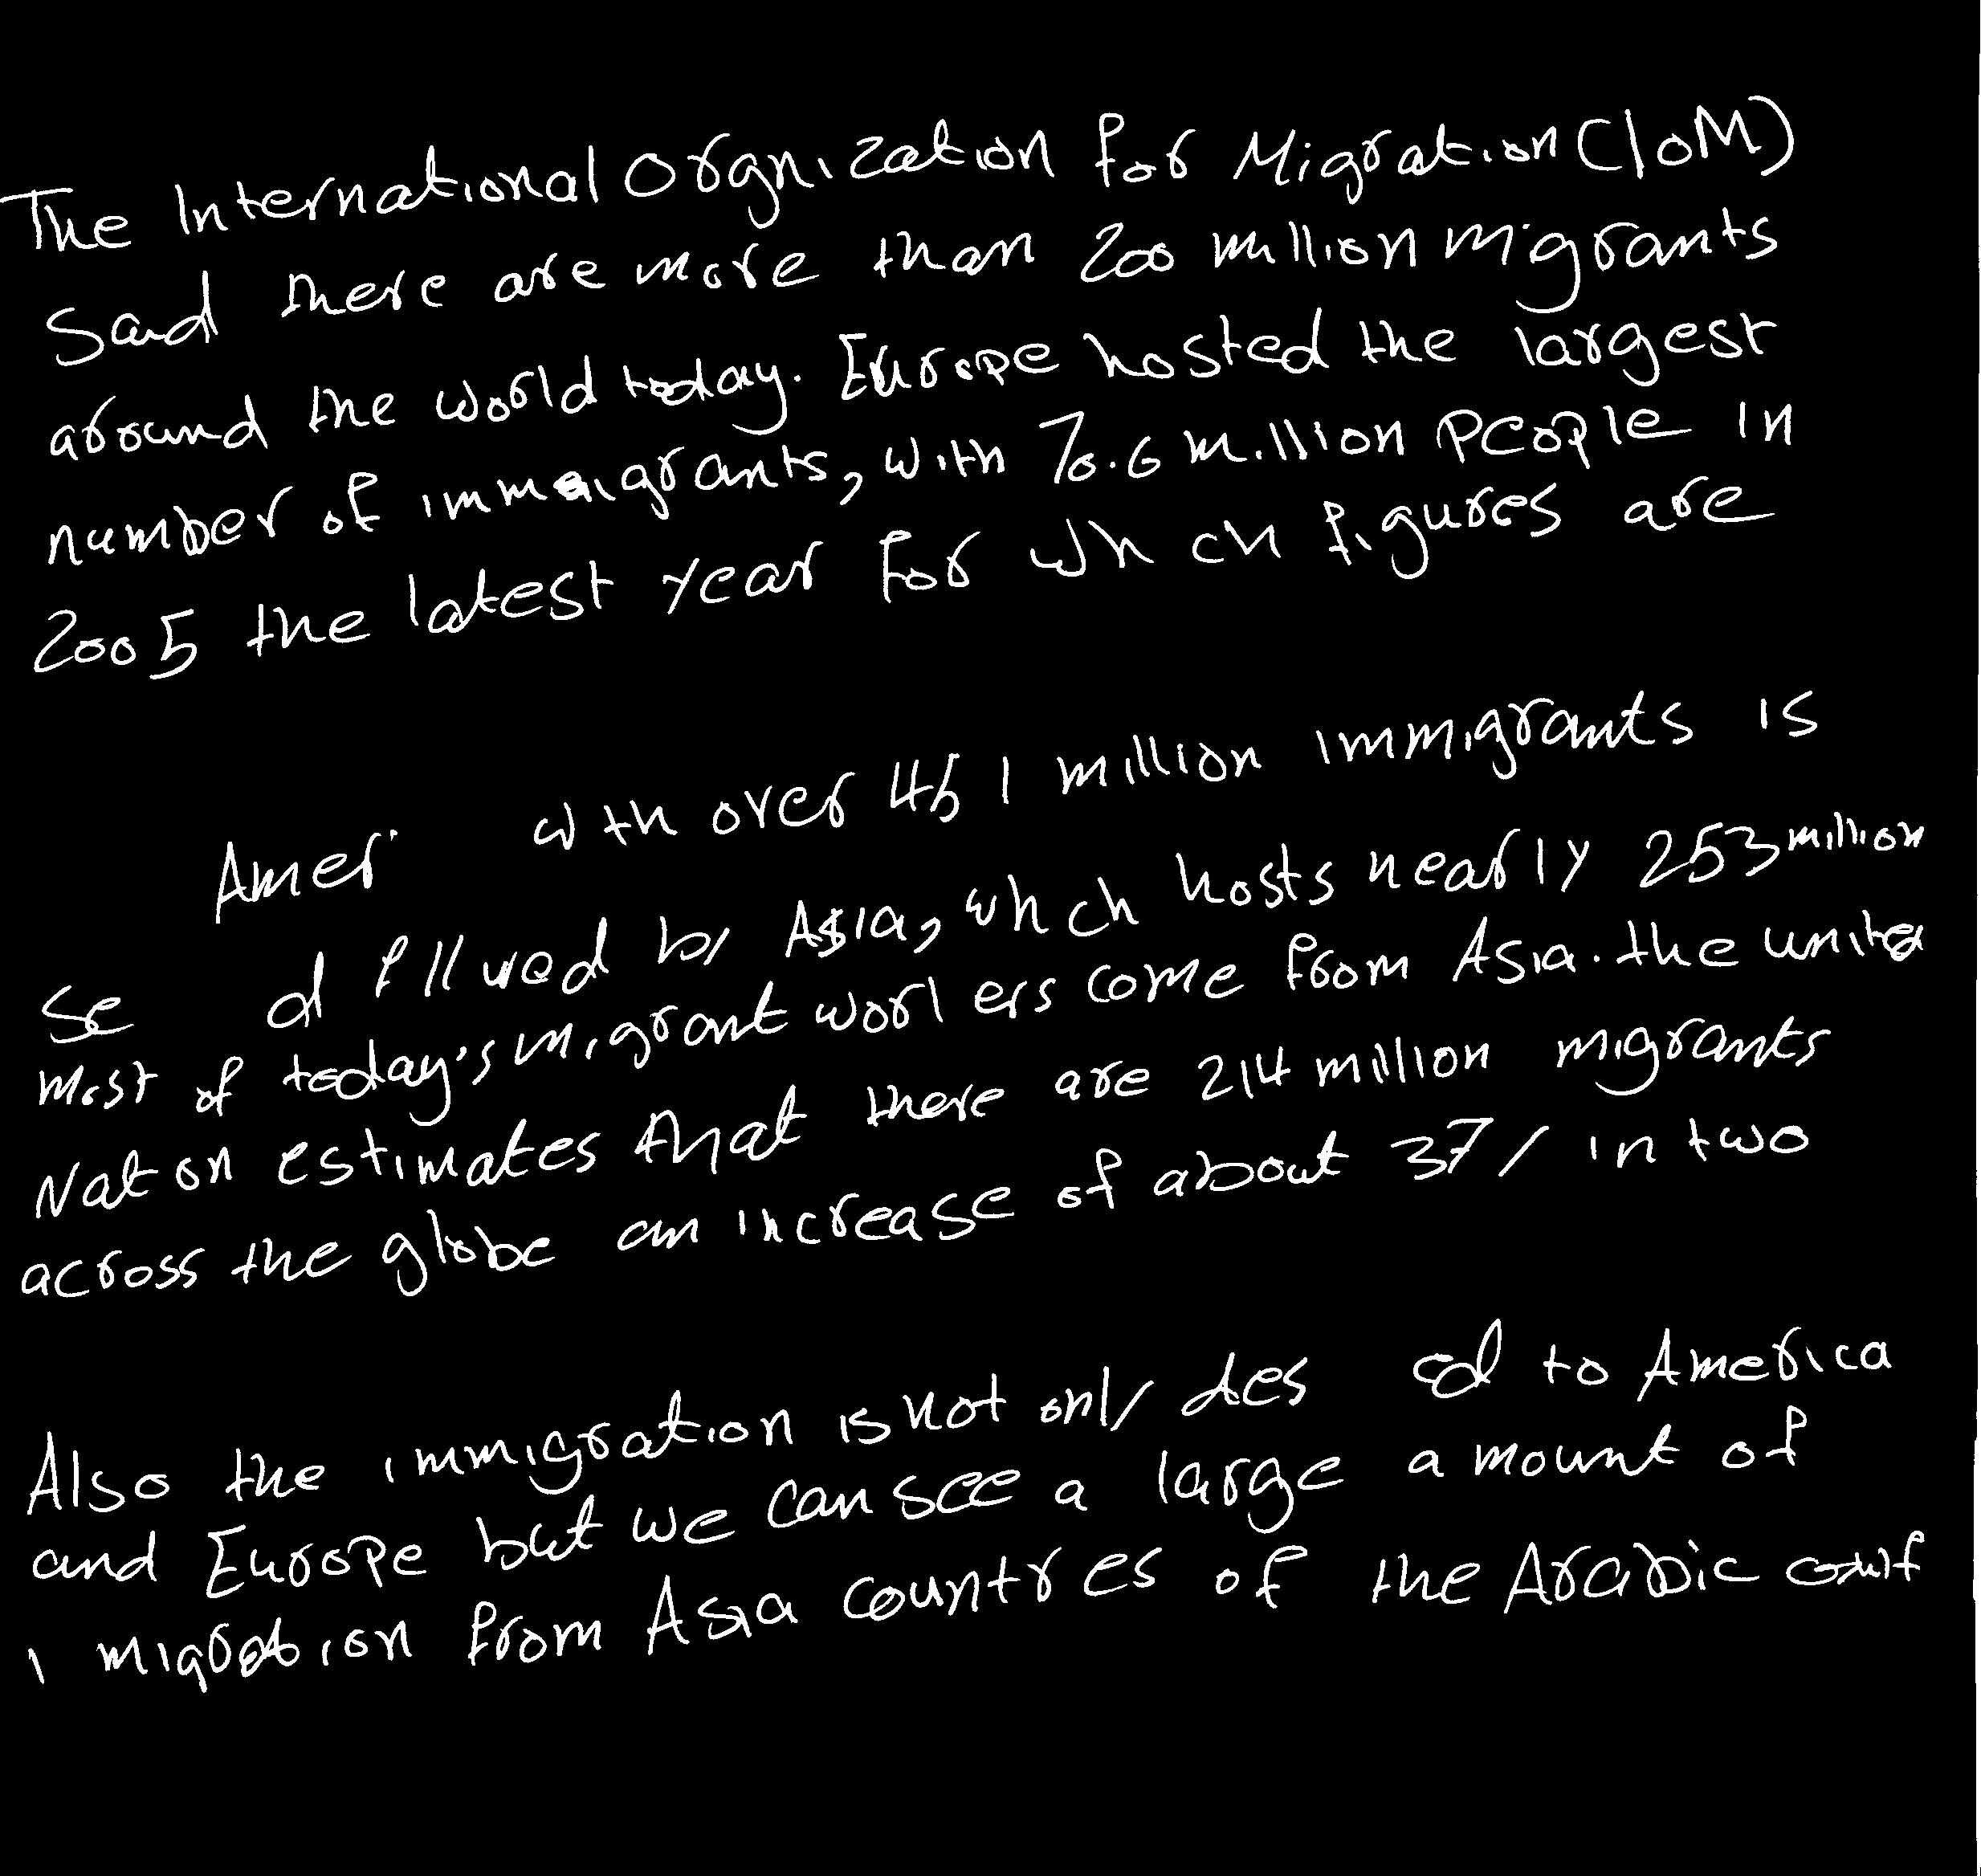 The International Orgnization for Migration (IOM)
Said there are more than 200 million migrants
around the world today. Europe hosted the largest
number of immigrants, with 70.6 million people in
2005 the latest year for which figures are
with over 45 1 million immigrants is
by Asia, which hosts nearly 253 million
most of today's migrant come from Asia. the united
Nation estimates that there are 214 million migrants
across the globe an increase of about 37 / in two
Also the immigration is not only to America
and Europe but we can see a large amount of
migration from Asia countres of the Arabic Gulf